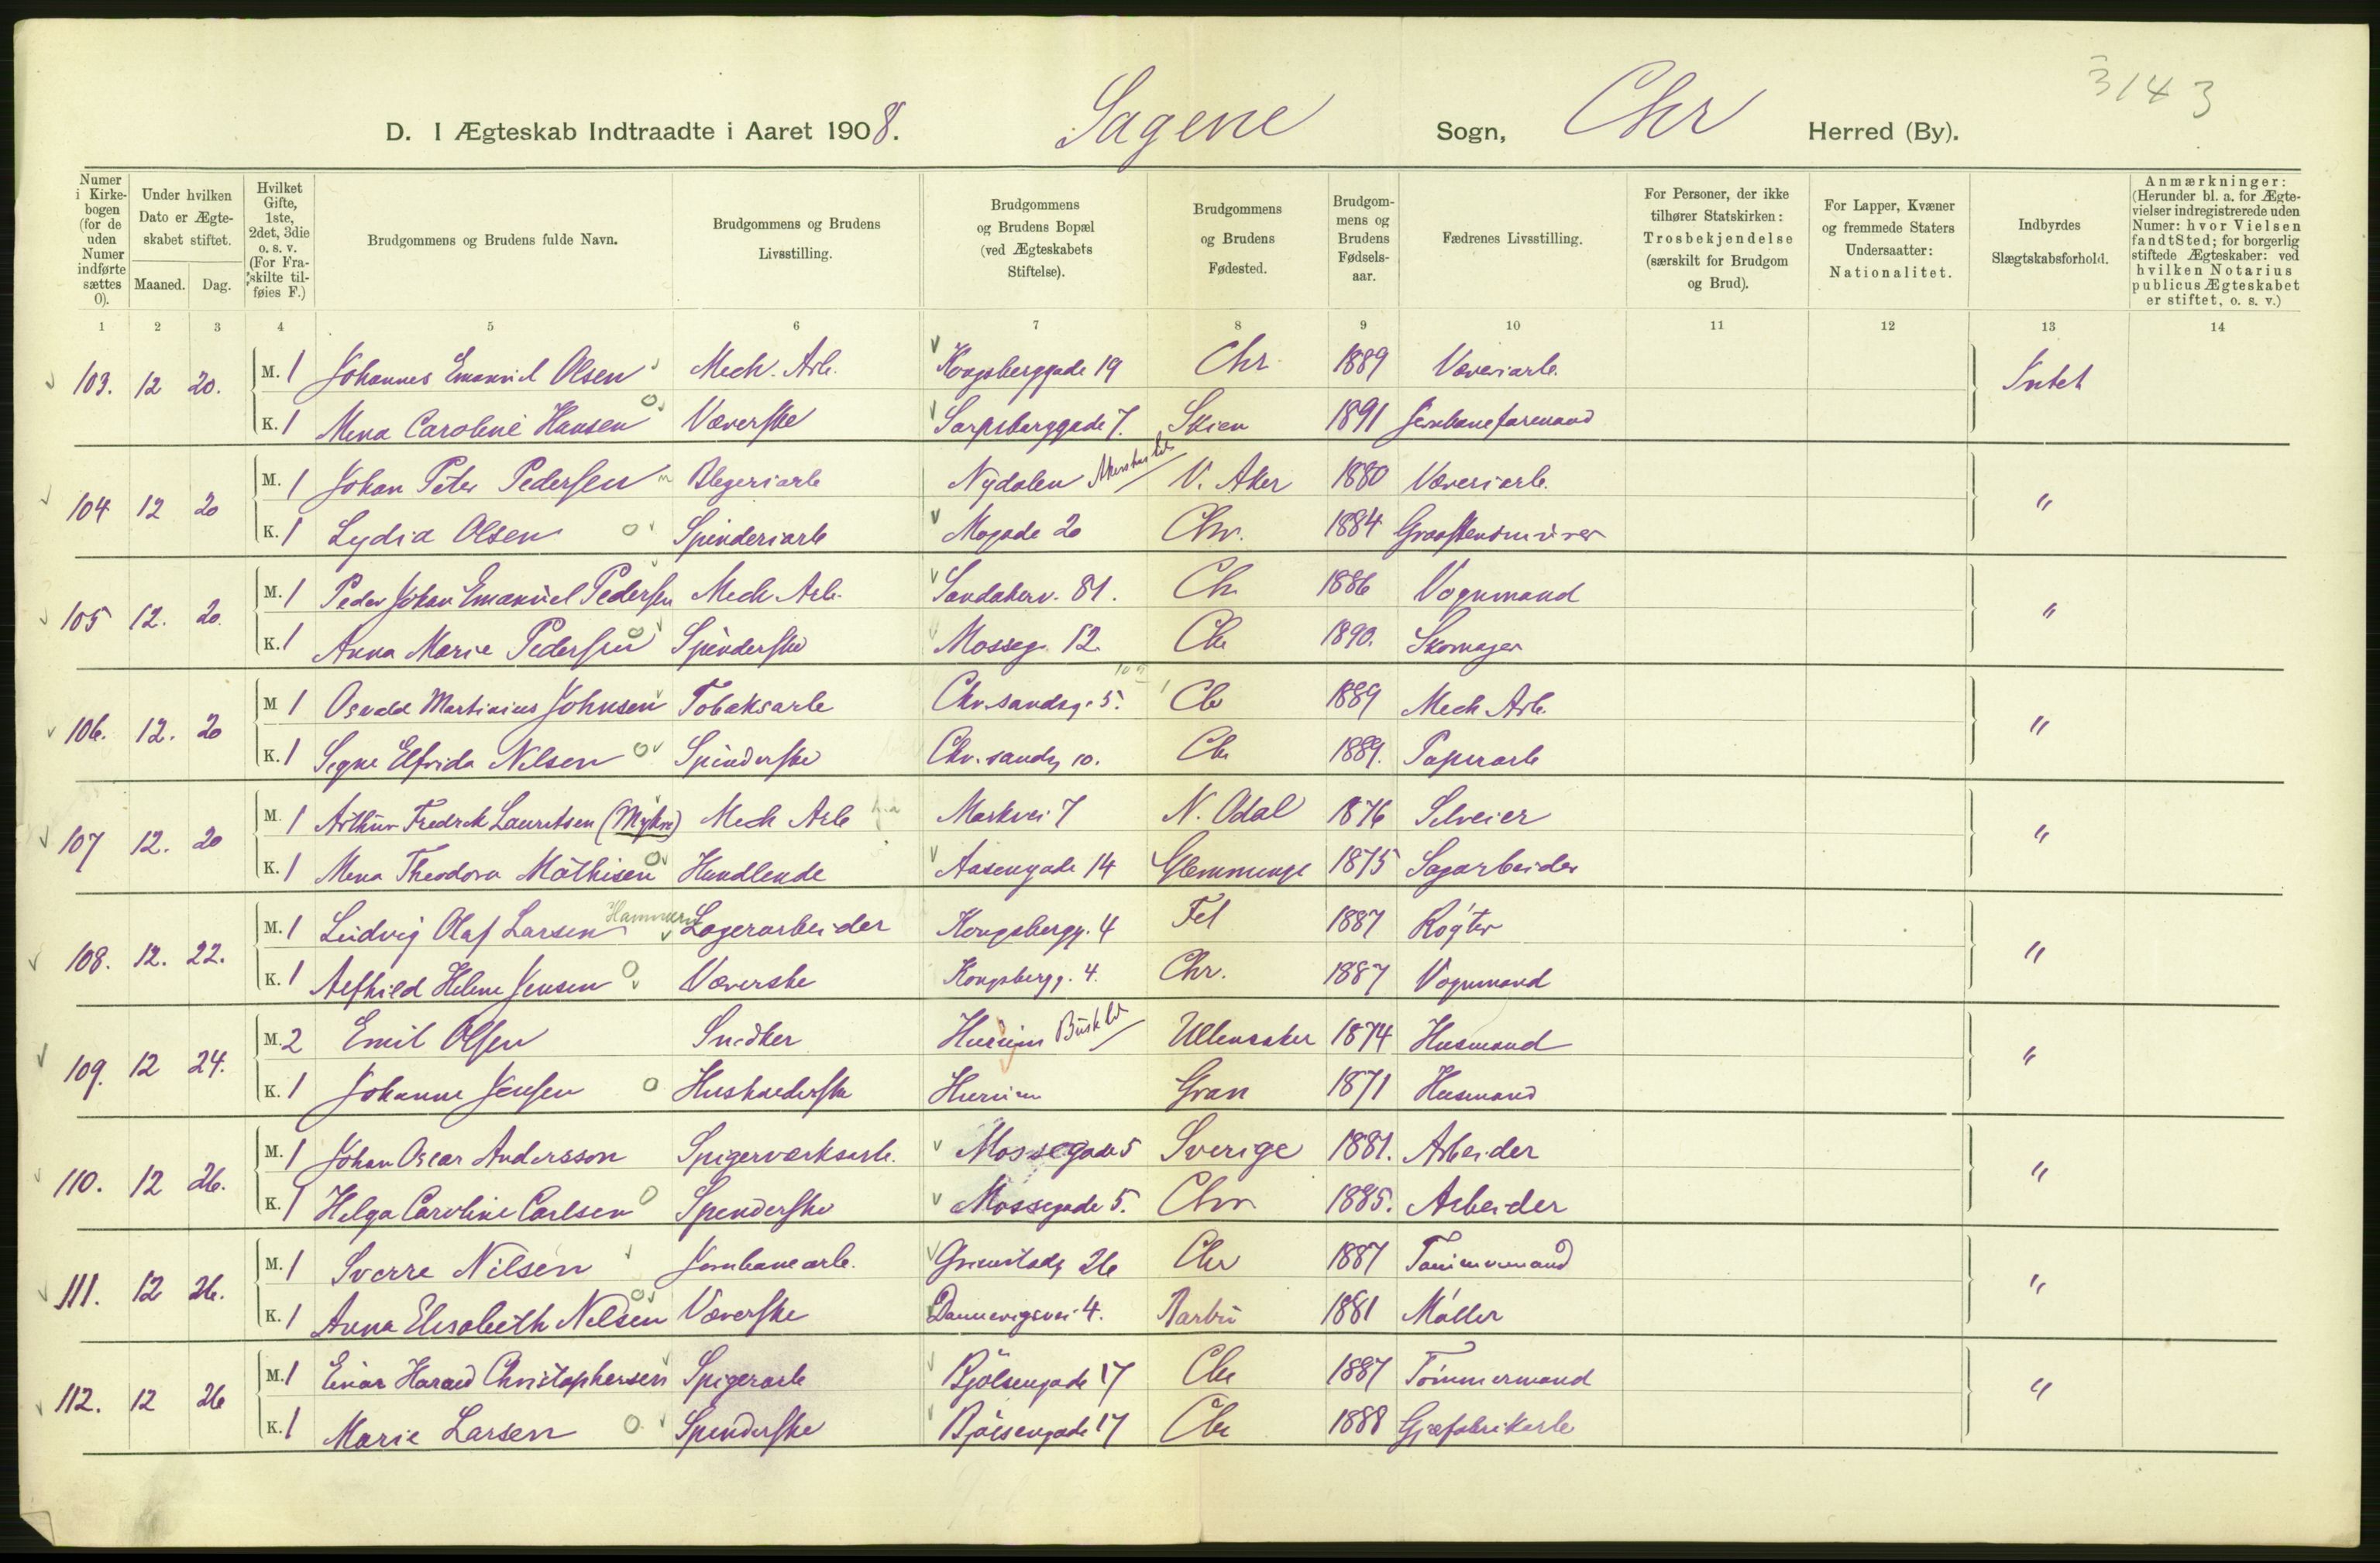 3143
D. I Ægteskab Indtraadte i Aaret 1908. Sagene Sogn, Chr Herred (By).
Numer i Kirkebogen (for de uden Numer indførte sættes 0).
Under hvilken Dato er Ægteskabet stiftet.
Maaned. Dag.
Hvilket Gifte, 1ste, 2det, 3die o. s. v. (For Fraskilte tilføies F.)
Brudgommens og Brudens fulde Navn.
Brudgommens og Brudens Livsstilling.
Brudgommens og Brudens Bopæl (ved Ægteskabets Stiftelse).
Brudgommens og Brudens Fødested.
Brudgommens og Brudens Fødselsaar.
Fædrenes Livsstilling.
For Personer, der ikke tilhører Statskirken: Trosbekjendelse (særskilt for Brudgom og Brud).
For Lapper, Kvæner og fremmede Staters Undersaatter: Nationalitet.
Indbyrdes Slægtskabsforhold.
Anmærkninger: (Herunder bl. a. for Ægtevielser indregistrerede uden Numer: hvor Vielsen fandt Sted; for borgerlig stiftede Ægteskaber: ved hvilken Notarius publicus Ægteskabet er stiftet, o. s. v.)
1 2 3 4 5 6 7 8 9 10 11 12 13 14
103. 12 20. M. 1 Johannes Emanuel Olsen Mech. Arb. Kongsberggade 19 Chr. 1889 Væveriarb. Intet
K. 1 Mena Caroline Hansen Væverske Sarpsborggade 7. Skien 1891 Jernbaneformand
104 12 20 M. 1 Johan Peter Pedersen Blegeriarb Nydalen V. Aker 1880 Væveriarb. "
K. 1 Lydia Olsen Spinderiarb Mogade 20 Chr. 1884 Graastensmurer
105 12. 20. M. 1 Peder Johan Emanuel Pedersen Mech Arb. Sandakerv. 81. Chr 1886 Vognmand "
K. 1 Anna Marie Pedersen Spinderske Mosseg. 12. Chr 1890. Skomager
106. 12. 20 M 1 Osvald Martinius Johnsen Tobaksarb Chr.sandsg. 5. Chr 1889 Mech Arb. "
K. 1 Signe Elfrida Nilsen Spinderske Chr.sandsg 10. Chr 1889. Papirarb
107 12. 20 M. 1 Arthur Fredrik Lauritsen (Myhre) Mech Arb Markvei 7 N. Odal 1876 Selveier "
K. 1 Mena Theodora Mathisen Handlende Aasengade 14 Glemminge 1875 Sagarbeider
108. 12. 22. M. 1 Ludvig Olaf Larsen Lagerarbeider Kongsbergg. 4 Fet 1887 Røgter "
K. 1 Alfhild Helene Jensen Væverske Kongsbergg. 4. Chr. 1887 Vognmand
109. 12 24. M. 2 Emil Olsen Snedker Hurum Buskerud Ullensaker 1874 Husmand "
K. 1 Johanne Jensen Husholderske Hurum Gran 1871 Husmand
110. 12 26. M. 1 Johan Oscar Andersson Spigerværksarb. Mossegade 5 Sverige 1881. Arbeider "
K. 1 Helga Caroline Carlsen Spinderske Mossegade 5. Chr 1885. Arbeider
111. 12 26. M. 1 Sverre Nilsen Jernbanearb. Grimstadg 26 Chr 1887 Tømmermand "
K. 1 Anna Elisabeth Nilsen Væverske Dannevigsvei 4. 1881 Møller
112. 12 26 M. 1 Einar Harald Christophersen Spigerarb Bjølsengade 17 Chr 1887 Tømmermand "
K. 1 Marie Larsen Spinderske Bjølsengade 17 Chr 1888